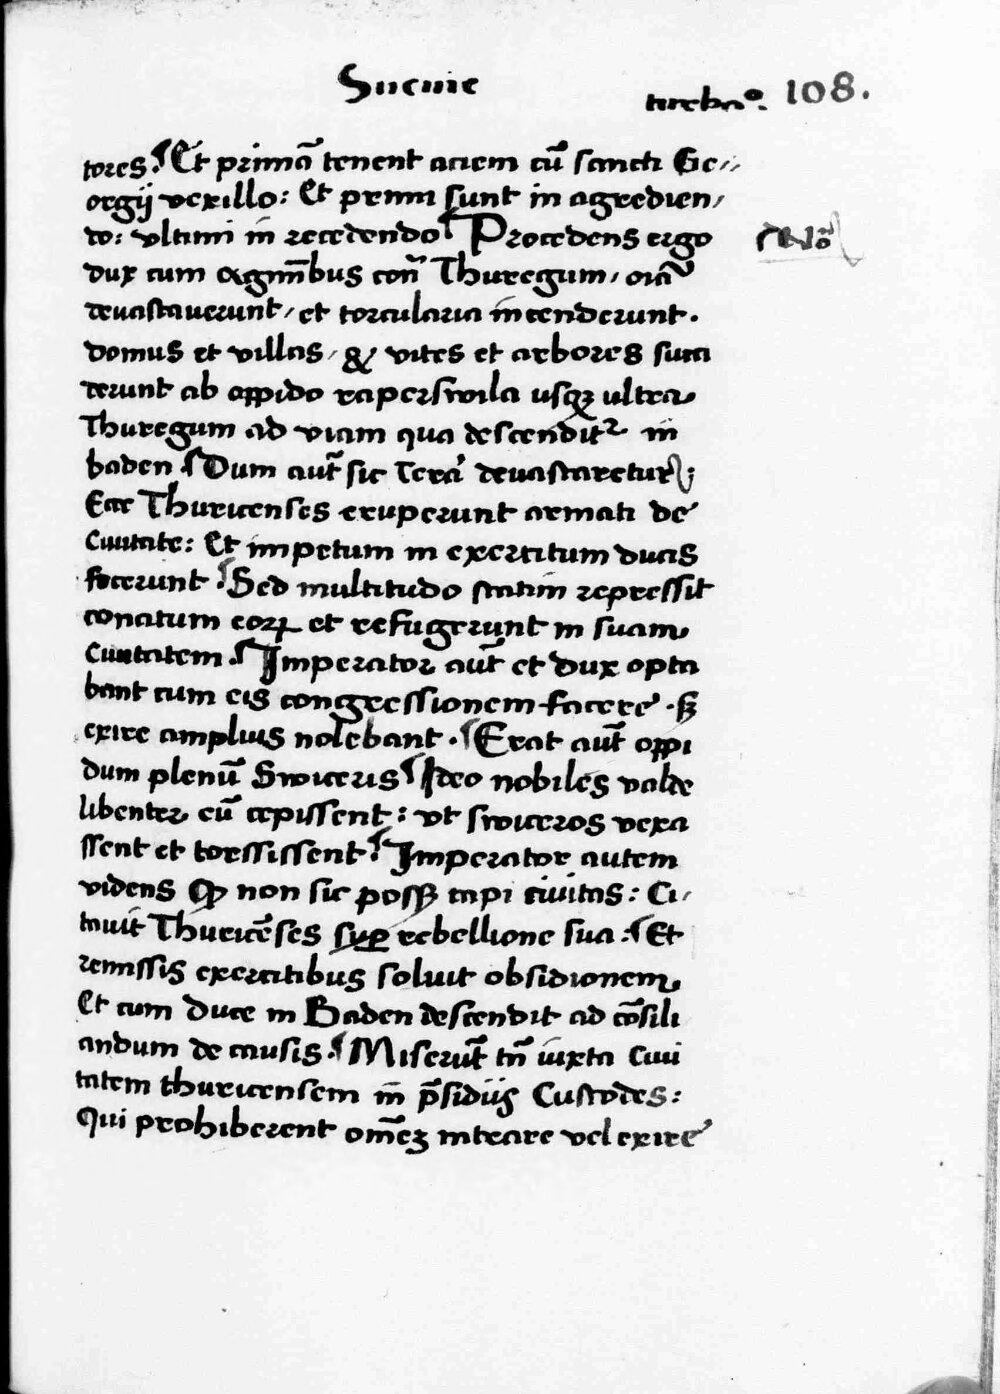 Sueuie
turbaº. 108.
tores. ¶ Et primā tenent aciem cū sancti Ge„
orgij vexillo: Et primi sunt in agredien,
do: vltimi in recedendo ¶ Procedens ergo
dux cum agminībus con̄ Thuregum, oīa
deuastauerunt, et torcularia incenderunt.
domus et villas, & vites et arbores succi
derunt ab oppido raperswila usqꝫ ultra
Thuregum ad viam qua descenditʳ in
baden ¶ Dum aut̄ sic terā deuastaretur;
Ecce Thuricenses eruperunt armati de
Ciuitate: Et impetum in exercitum ducis
fecerunt. ¶ Sed multitudo statim repressit
conatum eoꝝ et refugerunt in suam
Ciuitatem. ¶ Imperator aut̄ et dux opta
bant cum eis congressionem facere. sꝫ
exire amplius nolebant. ¶ Erat aut̄ oppi
dum plenū Swiceris ¶ Ideo nobiles valde
libenter eū cepissent: vt swiceros vexa
ssent et torssissent. ¶ Imperator autem
videns ꝙ non sic possꝫ capi ciuitas: Ci,
tauit Thuricēses suꝑ rebellione sua: ¶ Et
remissis exercitibus soluit obsidionem
Et cum duce in Baden descendit ad cōsili
andum de causis. ¶ Miserūt tn̄ iuxta Ciui
tatem thuricensem in p̄sidijs Custodes:
Qui prohiberent om̄eꝫ intrare vel exire